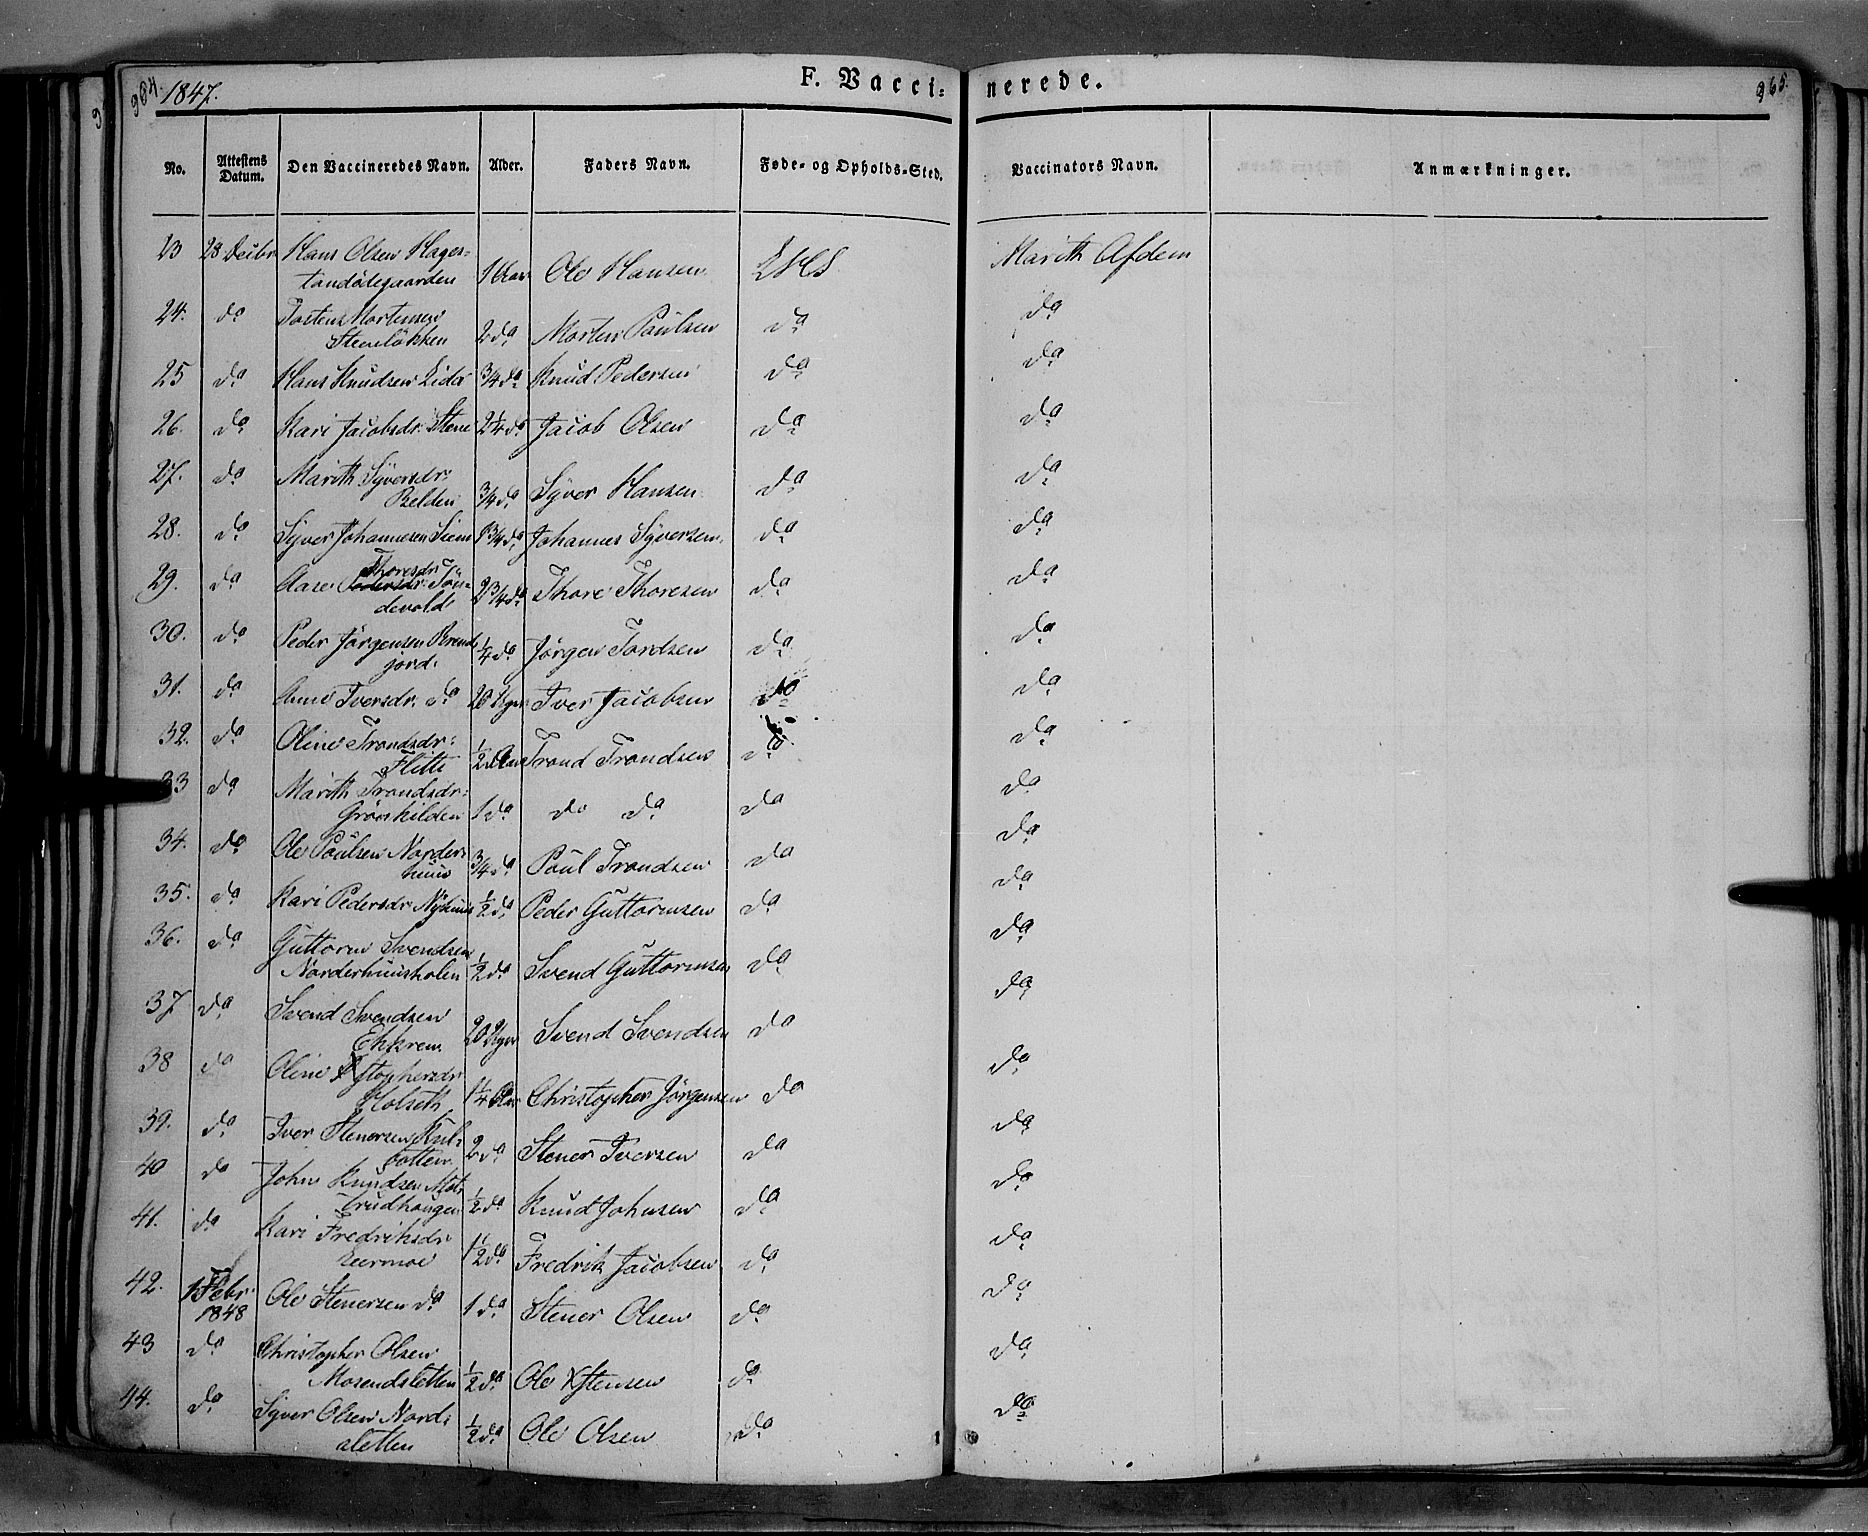 964. 1847. F. Vacci- nerede. 965.
No. Attestens Datum. Den Vaccineredes Navn. Alder. Faders Navn. Føde- og Opholds-Sted. Vaccinators Navn. Anmærkninger.
23 28 Decbr Hans Olsen Hages- 1 Aar Ole Hansen Marith Afdem
24. do Mortensen 2 do Morten Paulsen do do
25 do Hans Knudsen Lida 3/4 do Knud Pedersen do do
26. do Kari Jacobsdr. Stene 2 1/4 do Jacob Olsen do do
27. do Marith Syversdr: 3/4 do Syver Hansen do do
Belden
28. do Syver Johannesen Siem 1 3/4 do Johannes Syversen do do
29. do Aase Thoresdr. Tøn- 2 3/4 do Thore Thoresen do do
devold
30. do Peder Jørgensen Brend- 1/4 do Jørgen Tordsen do do
jord.
31. do Iversdr. do 20 Uger Iver Jacobsen do do
32. do Oline Trondsdr: 1/2 Aar Trond Trondsen do do
Flitti
33 do Marith Trondsdr: 1 do do do do do
Grønkilden
34. do Ole Paulsen Norder- 3/4 do Paul Trondsen do do
huus
35. do Kari Pedersdr Nyhuus 1/2 do Peder Guttormsen do do
36. do Guttorm Svendsen 1/2 do Svend Guttormsen do do
Norderhuusholen
37. do Svend Svendsen 20 Uger Svend Svendsen do do
Ekkren
38 do Oline Xstophersdr 1 1/4 Aar Christopher Jørgensen do do
Holseth
39. do Iver Stenersen 2 do Stener Iversen do do
botten
40 do John Knudsen 1/2 do Knud Johnsen do do
trudhaugen
41. do Kari Fredriksdr 1 1/2 do Fredrik Jacobsen do do
42. 1 Febr. 1848 Ole Stenersen do 1 do Stener Olsen do do
43 do Christopher Olsen 1/2 do Ole Xstensen do do
Mosendsletten
44. do Syver Olsen Nord- 1/2 do Ole Olsen do do
sletten